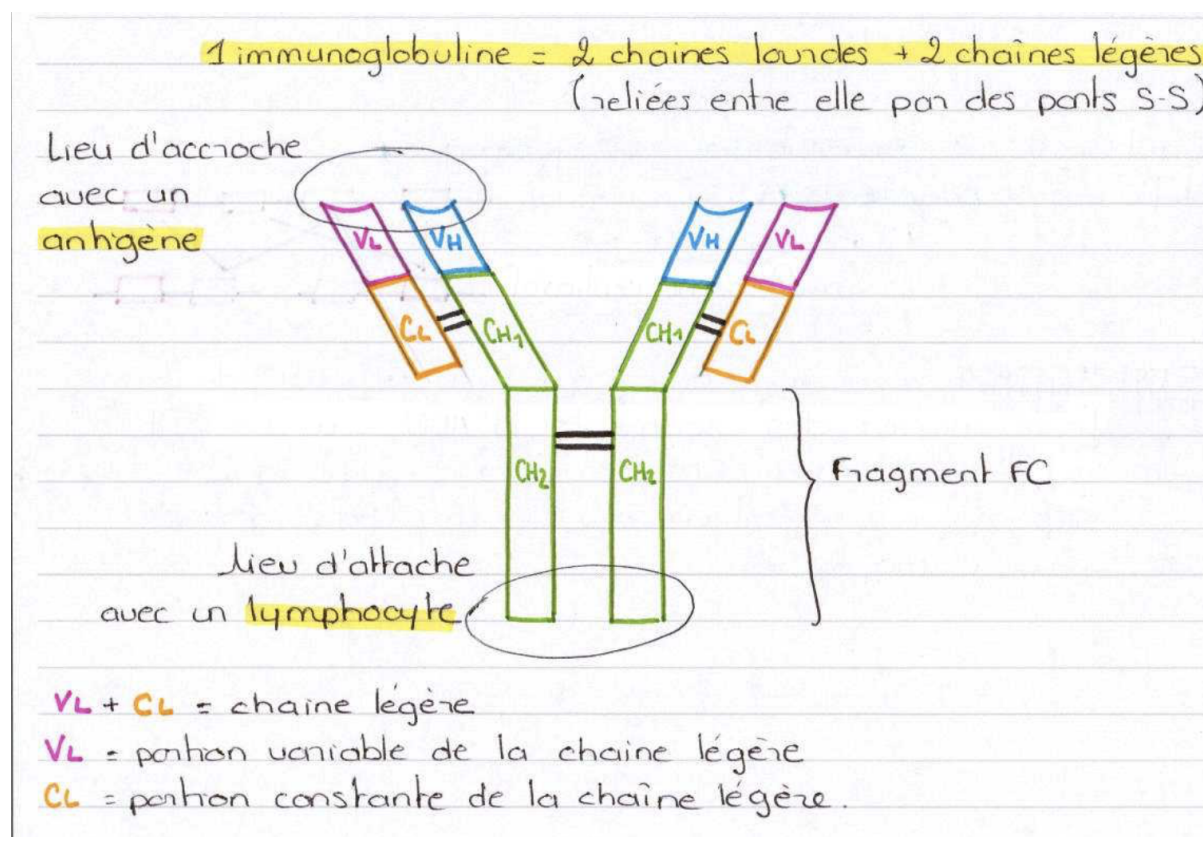 1 immunoglobuline = 2 chaines lourdes + 2 chaînes légères
(reliées entre elle par des ponts S-S)
Lieu d'accroche
avec un
antigène
VL VH VH VL
CL CH1 CH1 CL
CH2 CH2
Fragment FC
Lieu d'attache
avec un lymphocyte
VL + CL = chaine légère
VL = portion variable de la chaine légère
CL = portion constante de la chaîne légère.